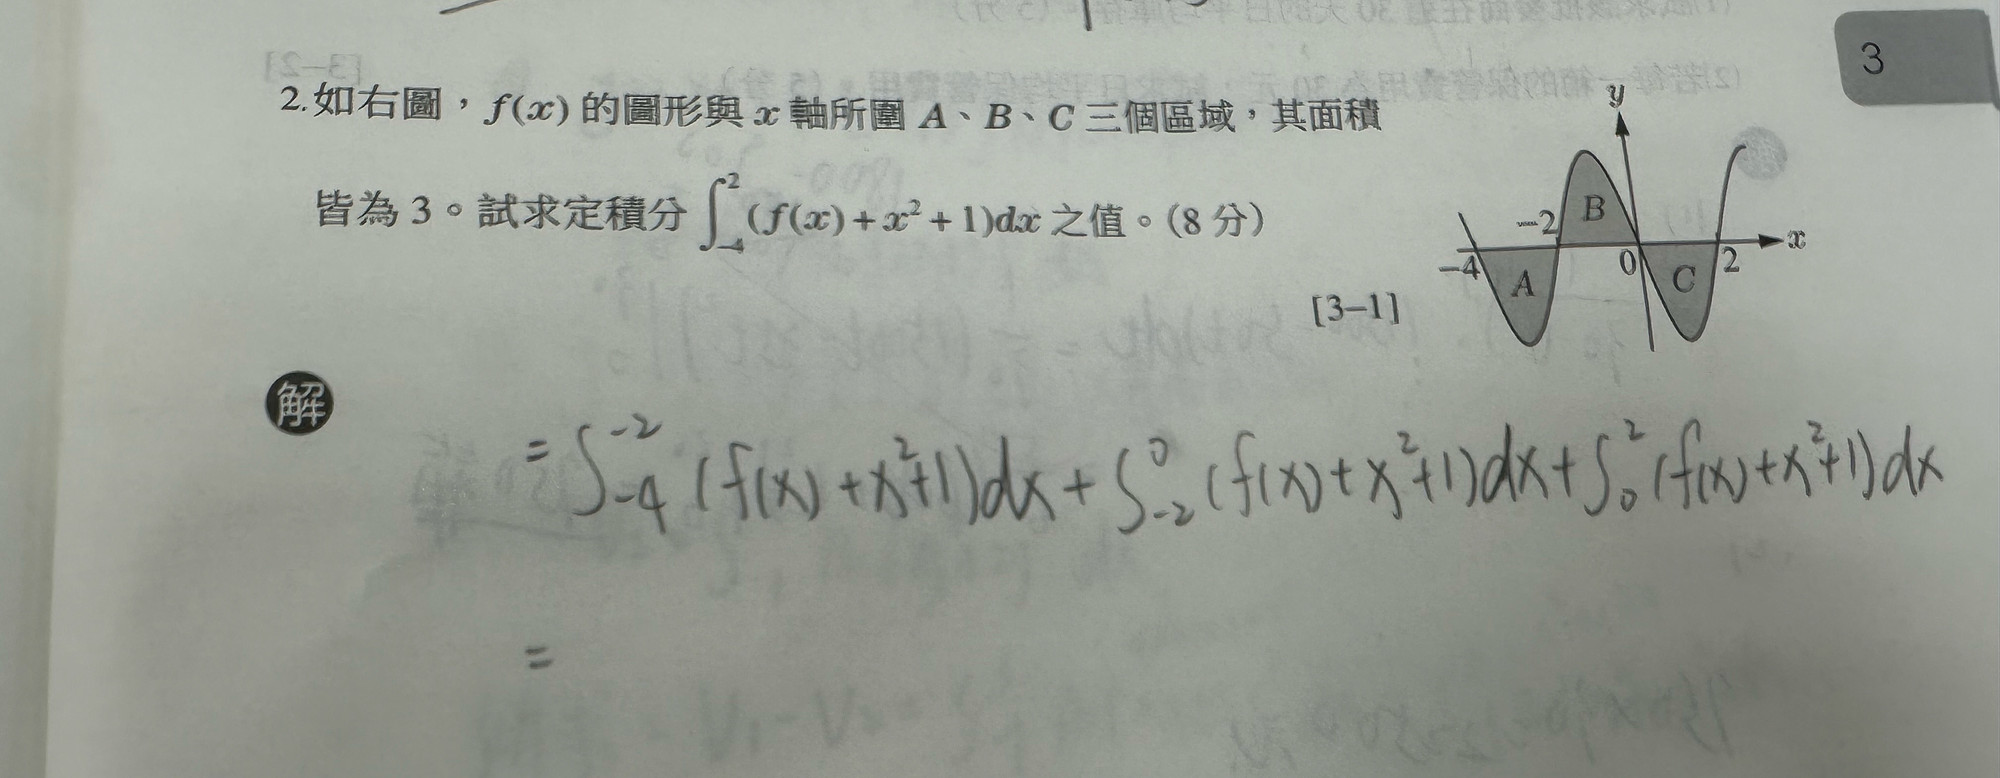 3
2.如右圖，f(x) 的圖形與 x 軸所圍 A、B、C 三個區域，其面積
皆為 3。試求定積分 ∫_{-4}^{2} (f(x)+x²+1)dx 之值。(8 分)
[3–1]
y
B
-2
x
-4
0
2
A
C
解
= ∫_{-4}^{-2} (f(x)+x²+1)dx + ∫_{-2}^{0} (f(x)+x²+1)dx + ∫_{0}^{2} (f(x)+x²+1)dx
=